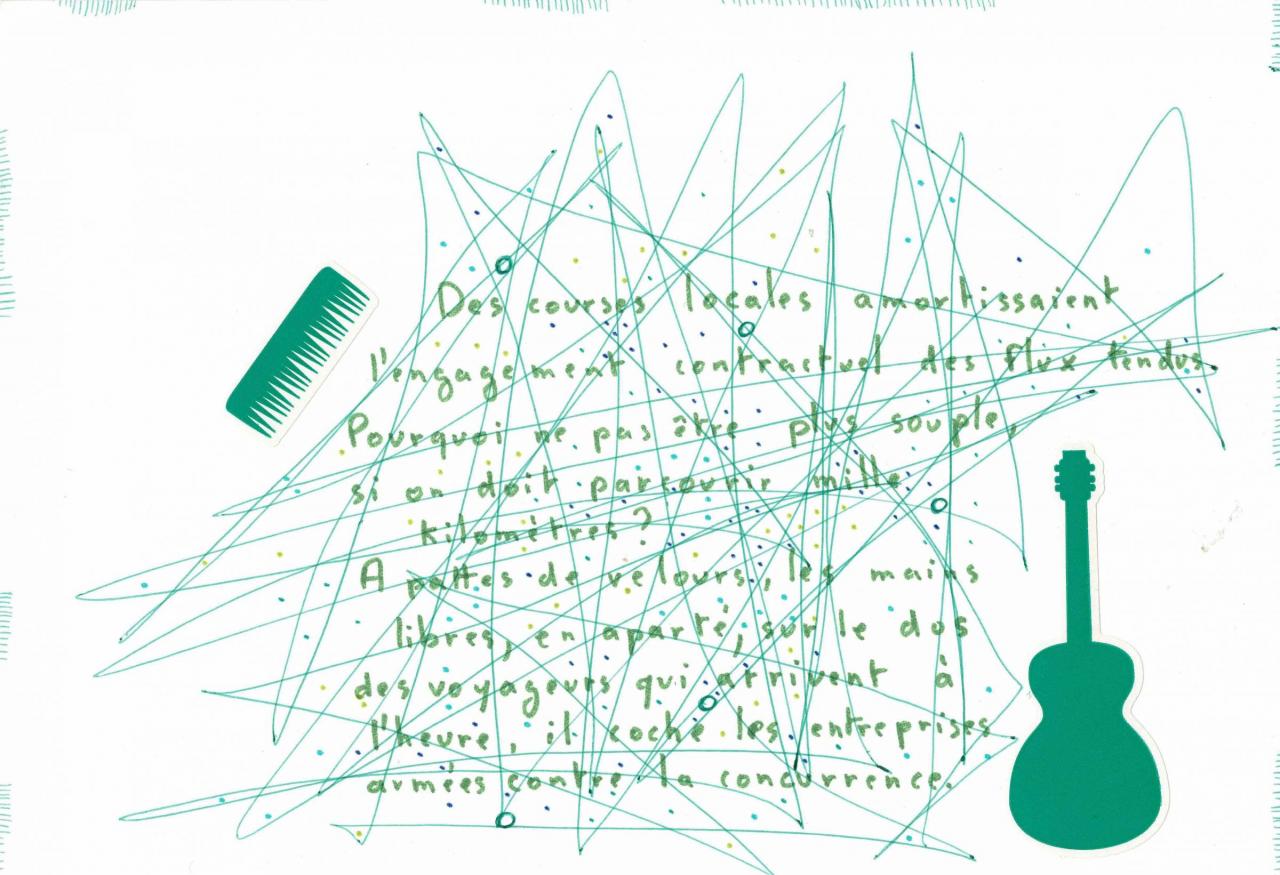 Des courses locales amortissaient
l'engagement contractuel des flux tendus.
Pourquoi ne pas être plus souple,
si on doit parcourir mille
kilomètres ?
A pattes de velours, les mains
libres, en aparté, sur le dos
des voyageurs qui arrivent à
l'heure, il coche les entreprises
armées contre la concurrence.